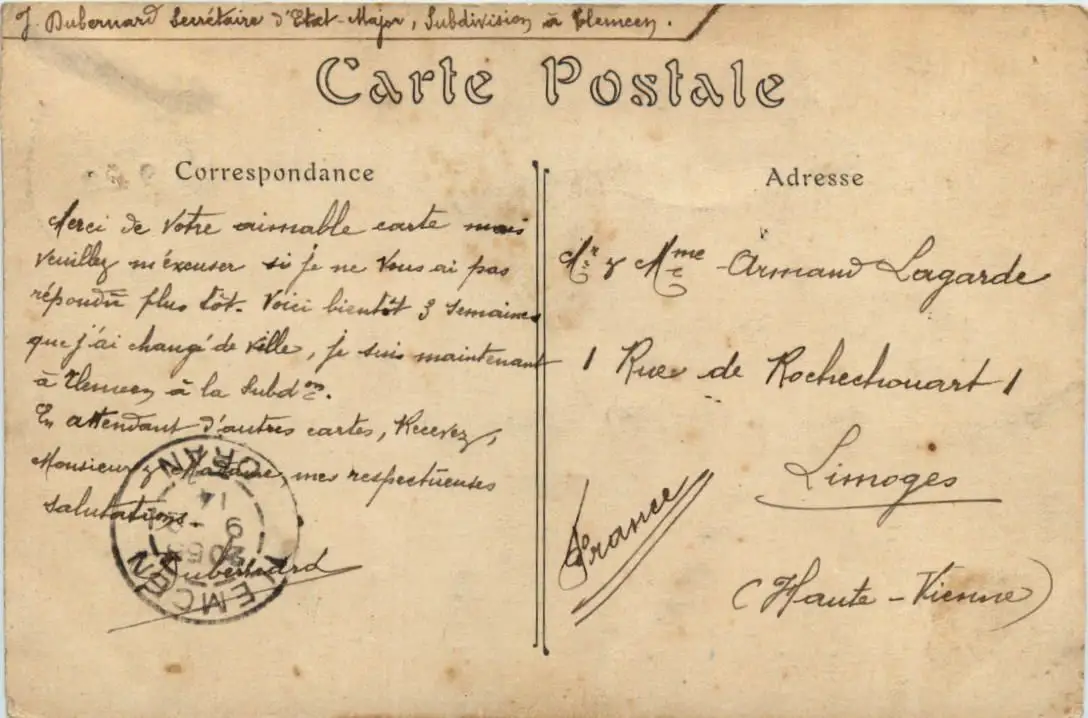 J. Dubernard Secrétaire d'Etat-Major, Subdivision à Tlemcen.
Carte Postale
Correspondance
Merci de votre aimable carte mais
veuillez m'excuser si je ne vous ai pas
répondu plus tôt. Voici bientôt 3 semaines
que j'ai changé de ville, je suis maintenant
à Tlemcen à la Subdon.
En attendant d'autres cartes, Recevez,
Monsieur & Madame, mes respectueuses
salutations.
Dubernard
ORAN
14
9
TLEMCEN
Adresse
Mr & Mme Armand Lagarde
1 Rue de Rochechouart 1
Limoges
France
(Haute-Vienne)